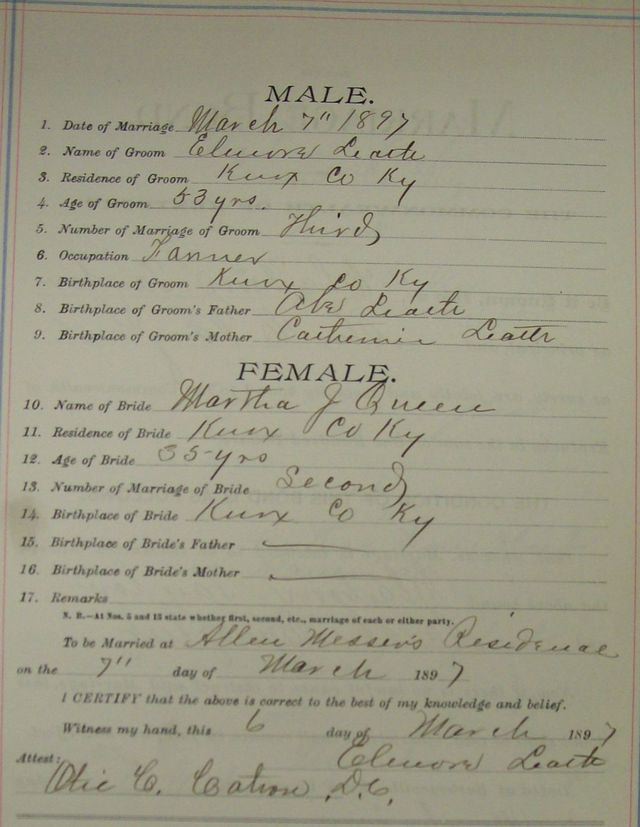 MALE.
1. Date of Marriage March 7" 1897
2. Name of Groom Elmore Leath
3. Residence of Groom Knox Co Ky
4. Age of Groom 53 yrs.
5. Number of Marriage of Groom Third
6. Occupation Farmer
7. Birthplace of Groom Knox Co Ky
8. Birthplace of Groom's Father Abe Leath
9. Birthplace of Groom's Mother Leath
FEMALE.
10. Name of Bride Martha J Queen
11. Residence of Bride Knox Co Ky
12. Age of Bride 35 yrs
13. Number of Marriage of Bride Second
14. Birthplace of Bride Knox Co Ky
15. Birthplace of Bride's Father
16. Birthplace of Bride's Mother
17. Remarks
N. B.—At Nos. 5 and 13 state whether first, second, etc., marriage of each or either party.
To be Married at Allen Messer's Residence
on the 7" day of March 1897
I CERTIFY that the above is correct to the best of my knowledge and belief.
Witness my hand, this 6 day of March 1897
Elmore Leath
Attest:
C. Catron D.C.